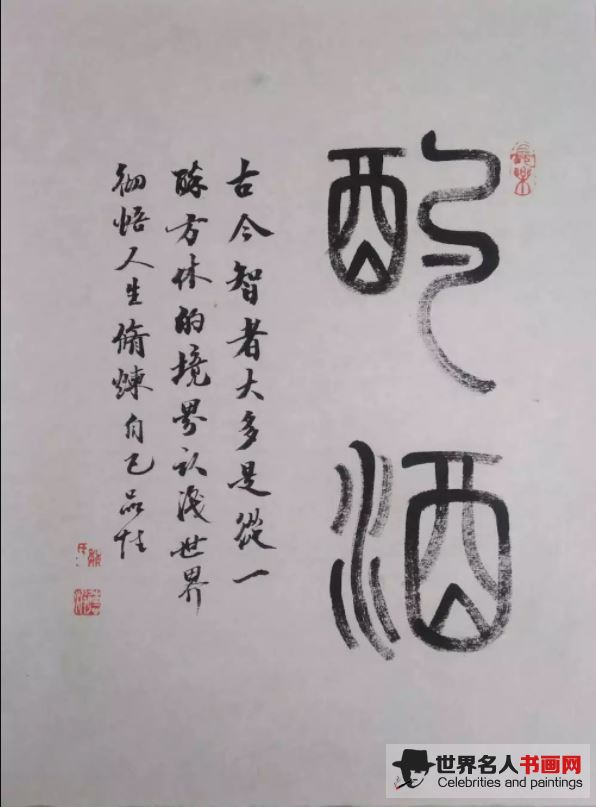 長樂
酒
古今智者大多是從一
醉方休的境界认識世界
彻悟人生脩煉自己品性
世界名人书画网
Celebrities and paintings